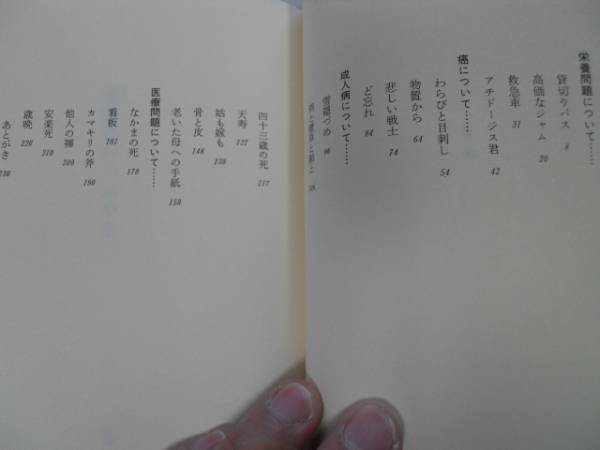 栄養問題について……
貸切りバス 8
高価なジャム 20
救急車 31
アチドージス君 42
癌について……
わらびと目刺し 54
物置から 64
悲しい戦士 74
ど忘れ 84
成人病について……
雪崩づめ 96
四十三歳の死 117
天寿 127
姑も嫁も 138
骨と皮 148
老いた母への手紙 159
医療問題について……
なかまの死 170
看板 181
カマキリの斧 190
他人の褌 200
安楽死 210
歳晩 220
あとがき 230